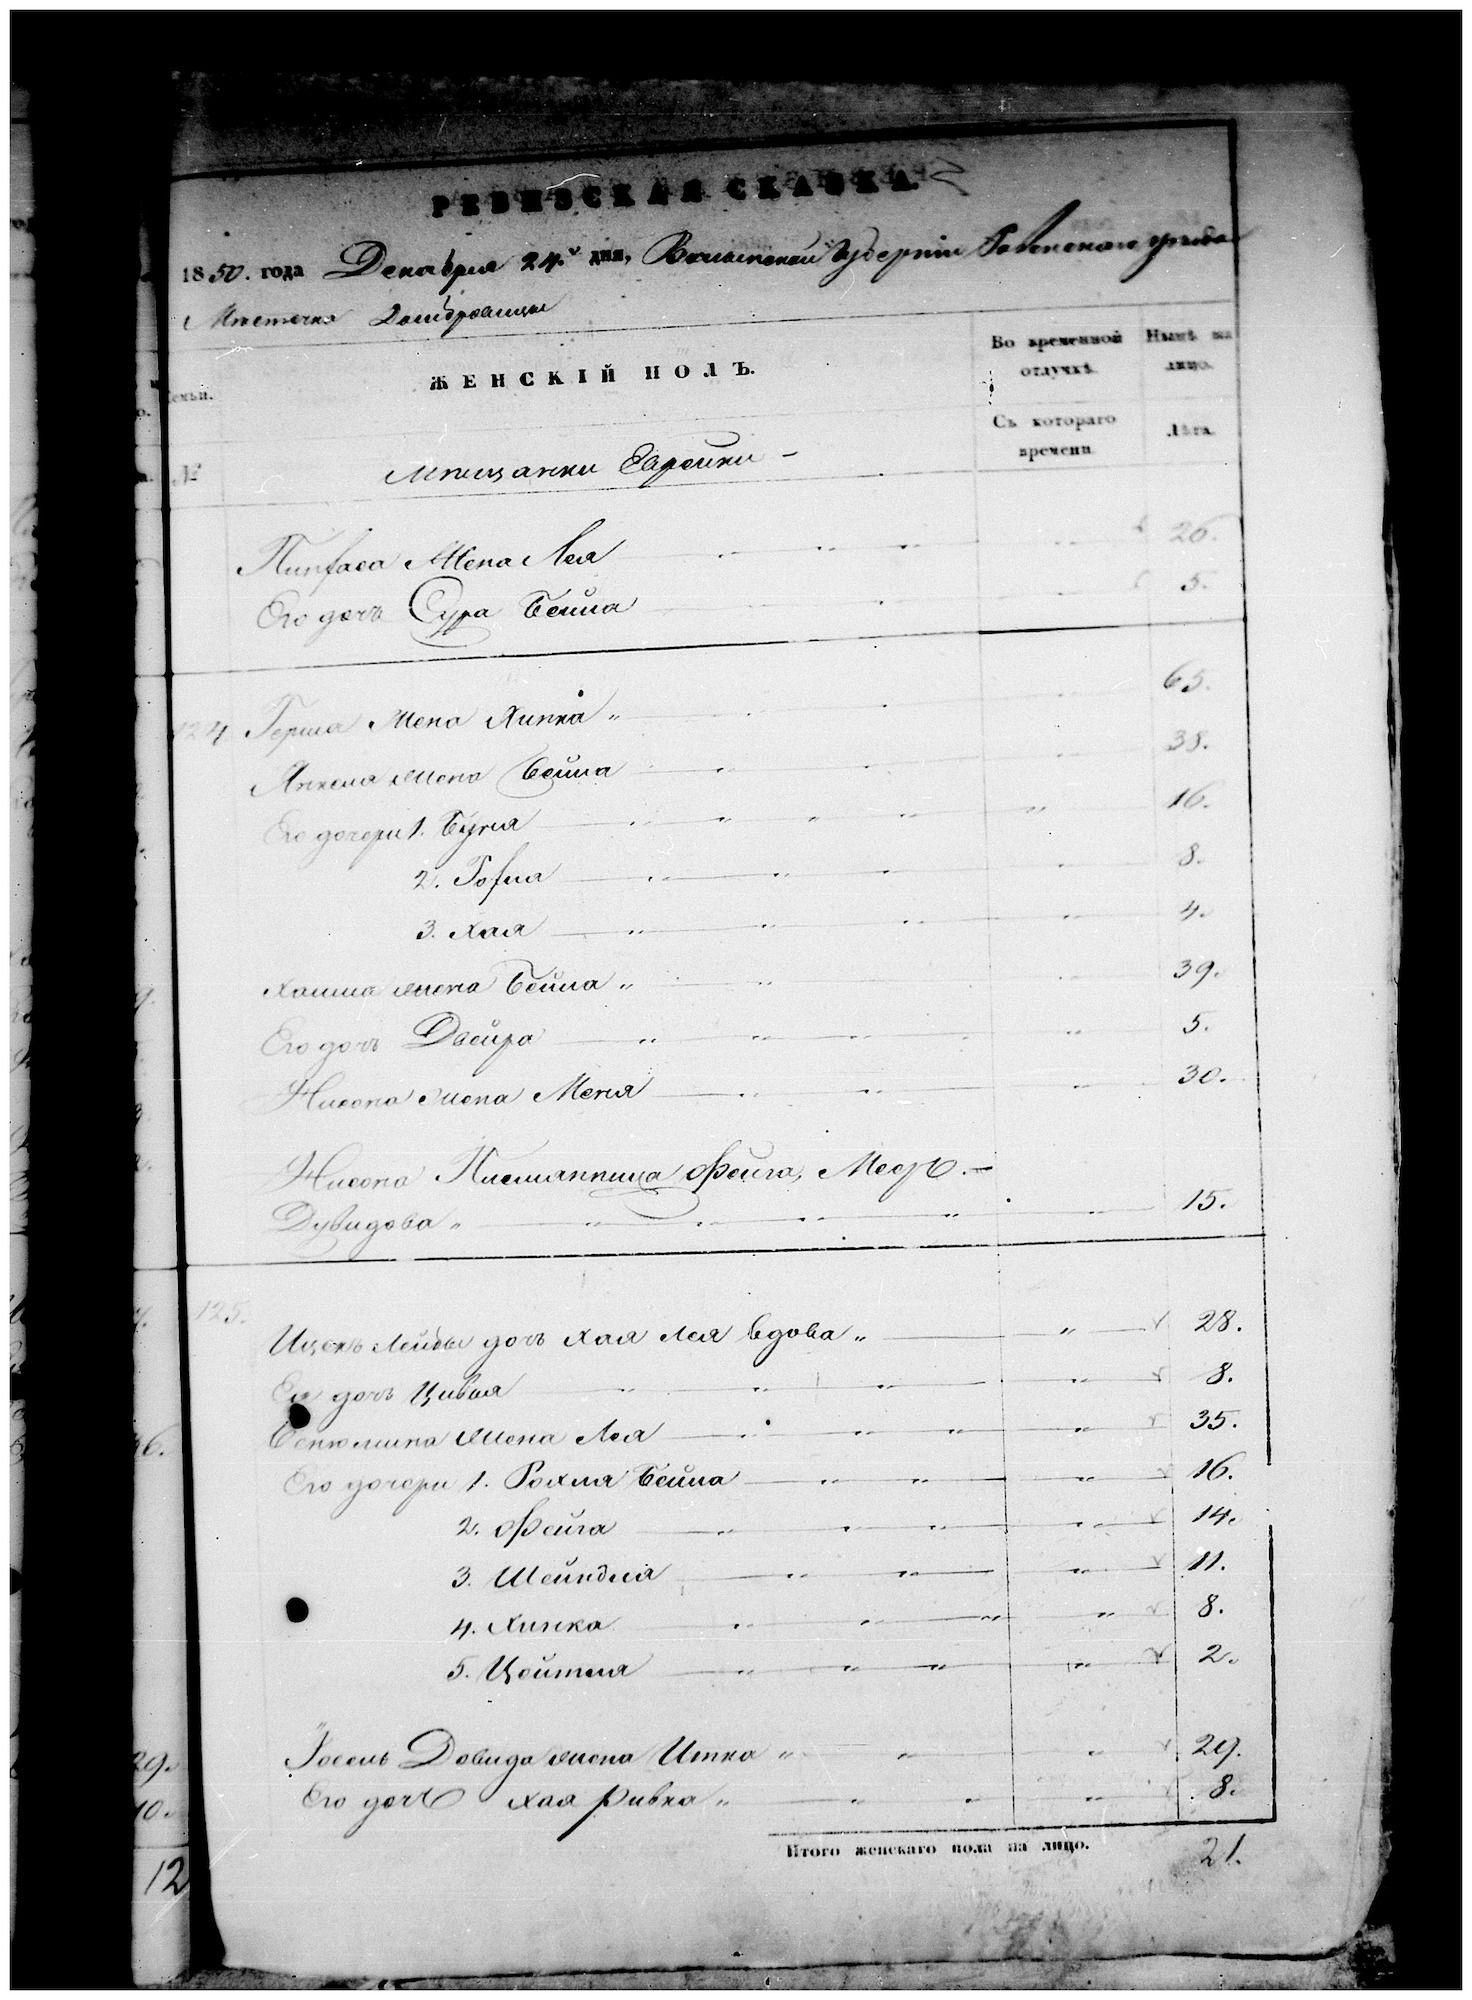 РЕВИЗСКАЯ СКАЗКА.
1850. года Декабря 24. дня, Волынской Губерніи Ровенскаго уѣзда
Мѣстечка Домбровицы
Семьи.
ЖЕНСКІЙ ПОЛЪ.
Во временной отлучкѣ.
Нынѣ на лицо.
Съ котораго времени
Лѣта.
№
Мѣщанки Еврейки -
Пинхаса Жена Лея 26.
Его дочь Сура Бейла 5.
124 Герша Жена Хинка „ 65.
Янкеля жена Бейла 38.
Его дочери 1. Буня 16.
2. 8.
3. Хая 4.
Хаима жена Бейла „ 39.
Его дочь Двейра 5.
Нисона жена Меня 30.
Нисона Племянница Фейга,
Дувидова „ 15.
125.
Ицекъ Лейбы дочь Хая Лея вдова „ 28.
Ея дочь Цивья 8.
Бенюмина жена Лея 35.
Его дочери 1. Рохля Бейла 16.
2. Фейга 14.
3. Шейндля 11.
4. Хинка 8.
5. Цейтля 2.
Іосель Довида жена Итка „ 29.
Его дочь Хая Ривка „ 8.
Итого женскаго пола на лицо. 21.
29.
10.
12